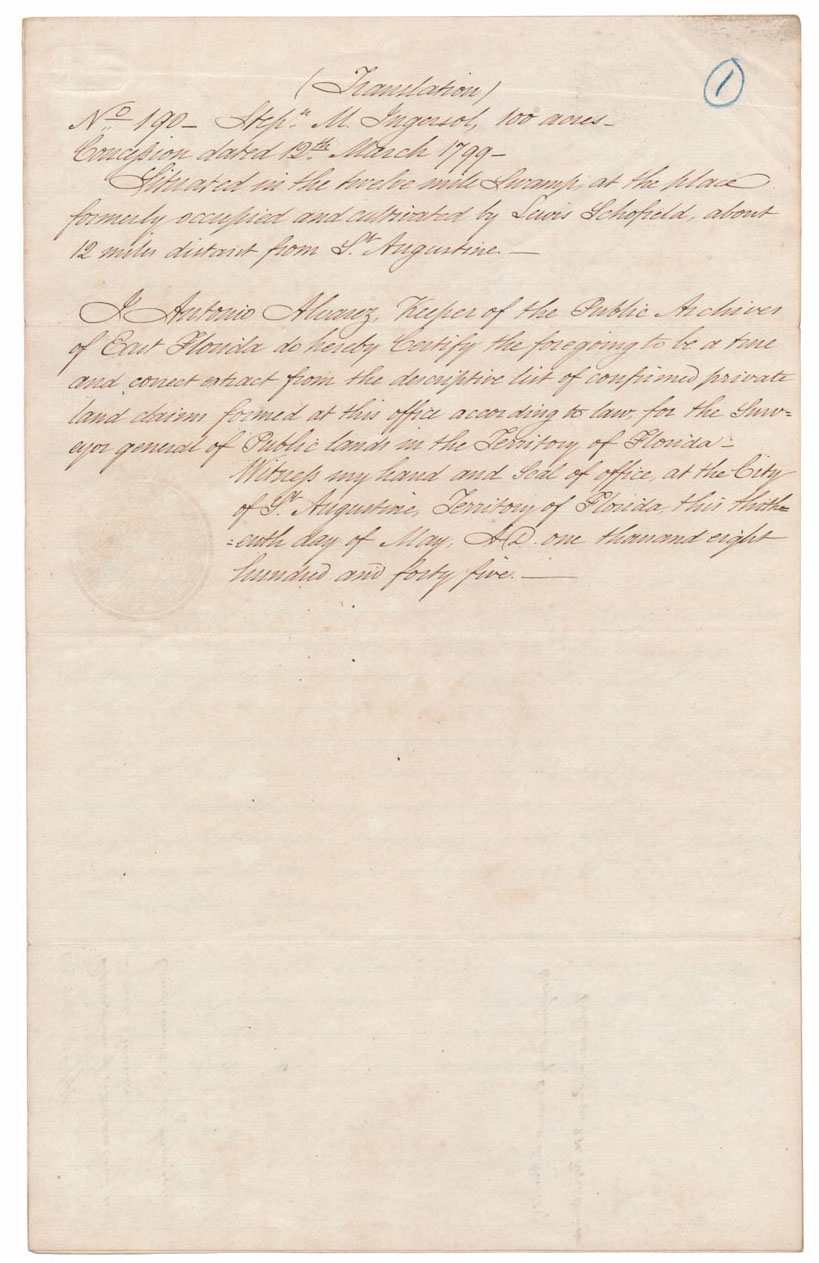 (Translation)
1
No 190 - Stepn M. Ingersol, 100 acres -
Concession dated 12th March 1799 -
Situated in the twelve mile Swamp, at the place
formerly occupied and cultivated by Lewis Schofield, about
12 miles distant from St Augustine. —
I Antonio Alvarez, Keeper of the Public Archives
of East Florida do hereby Certify the foregoing to be a true
and correct extract from the descriptive list of confirmed private
land claims formed at this office according to law, for the Surv=
eyor general of Public lands in the Territory of Florida -
Witness my hand and Seal of office, at the City
of St Augustine, Territory of Florida, this thirt=
=eenth day of May, A.D. one thousand eight
hundred and forty five. —